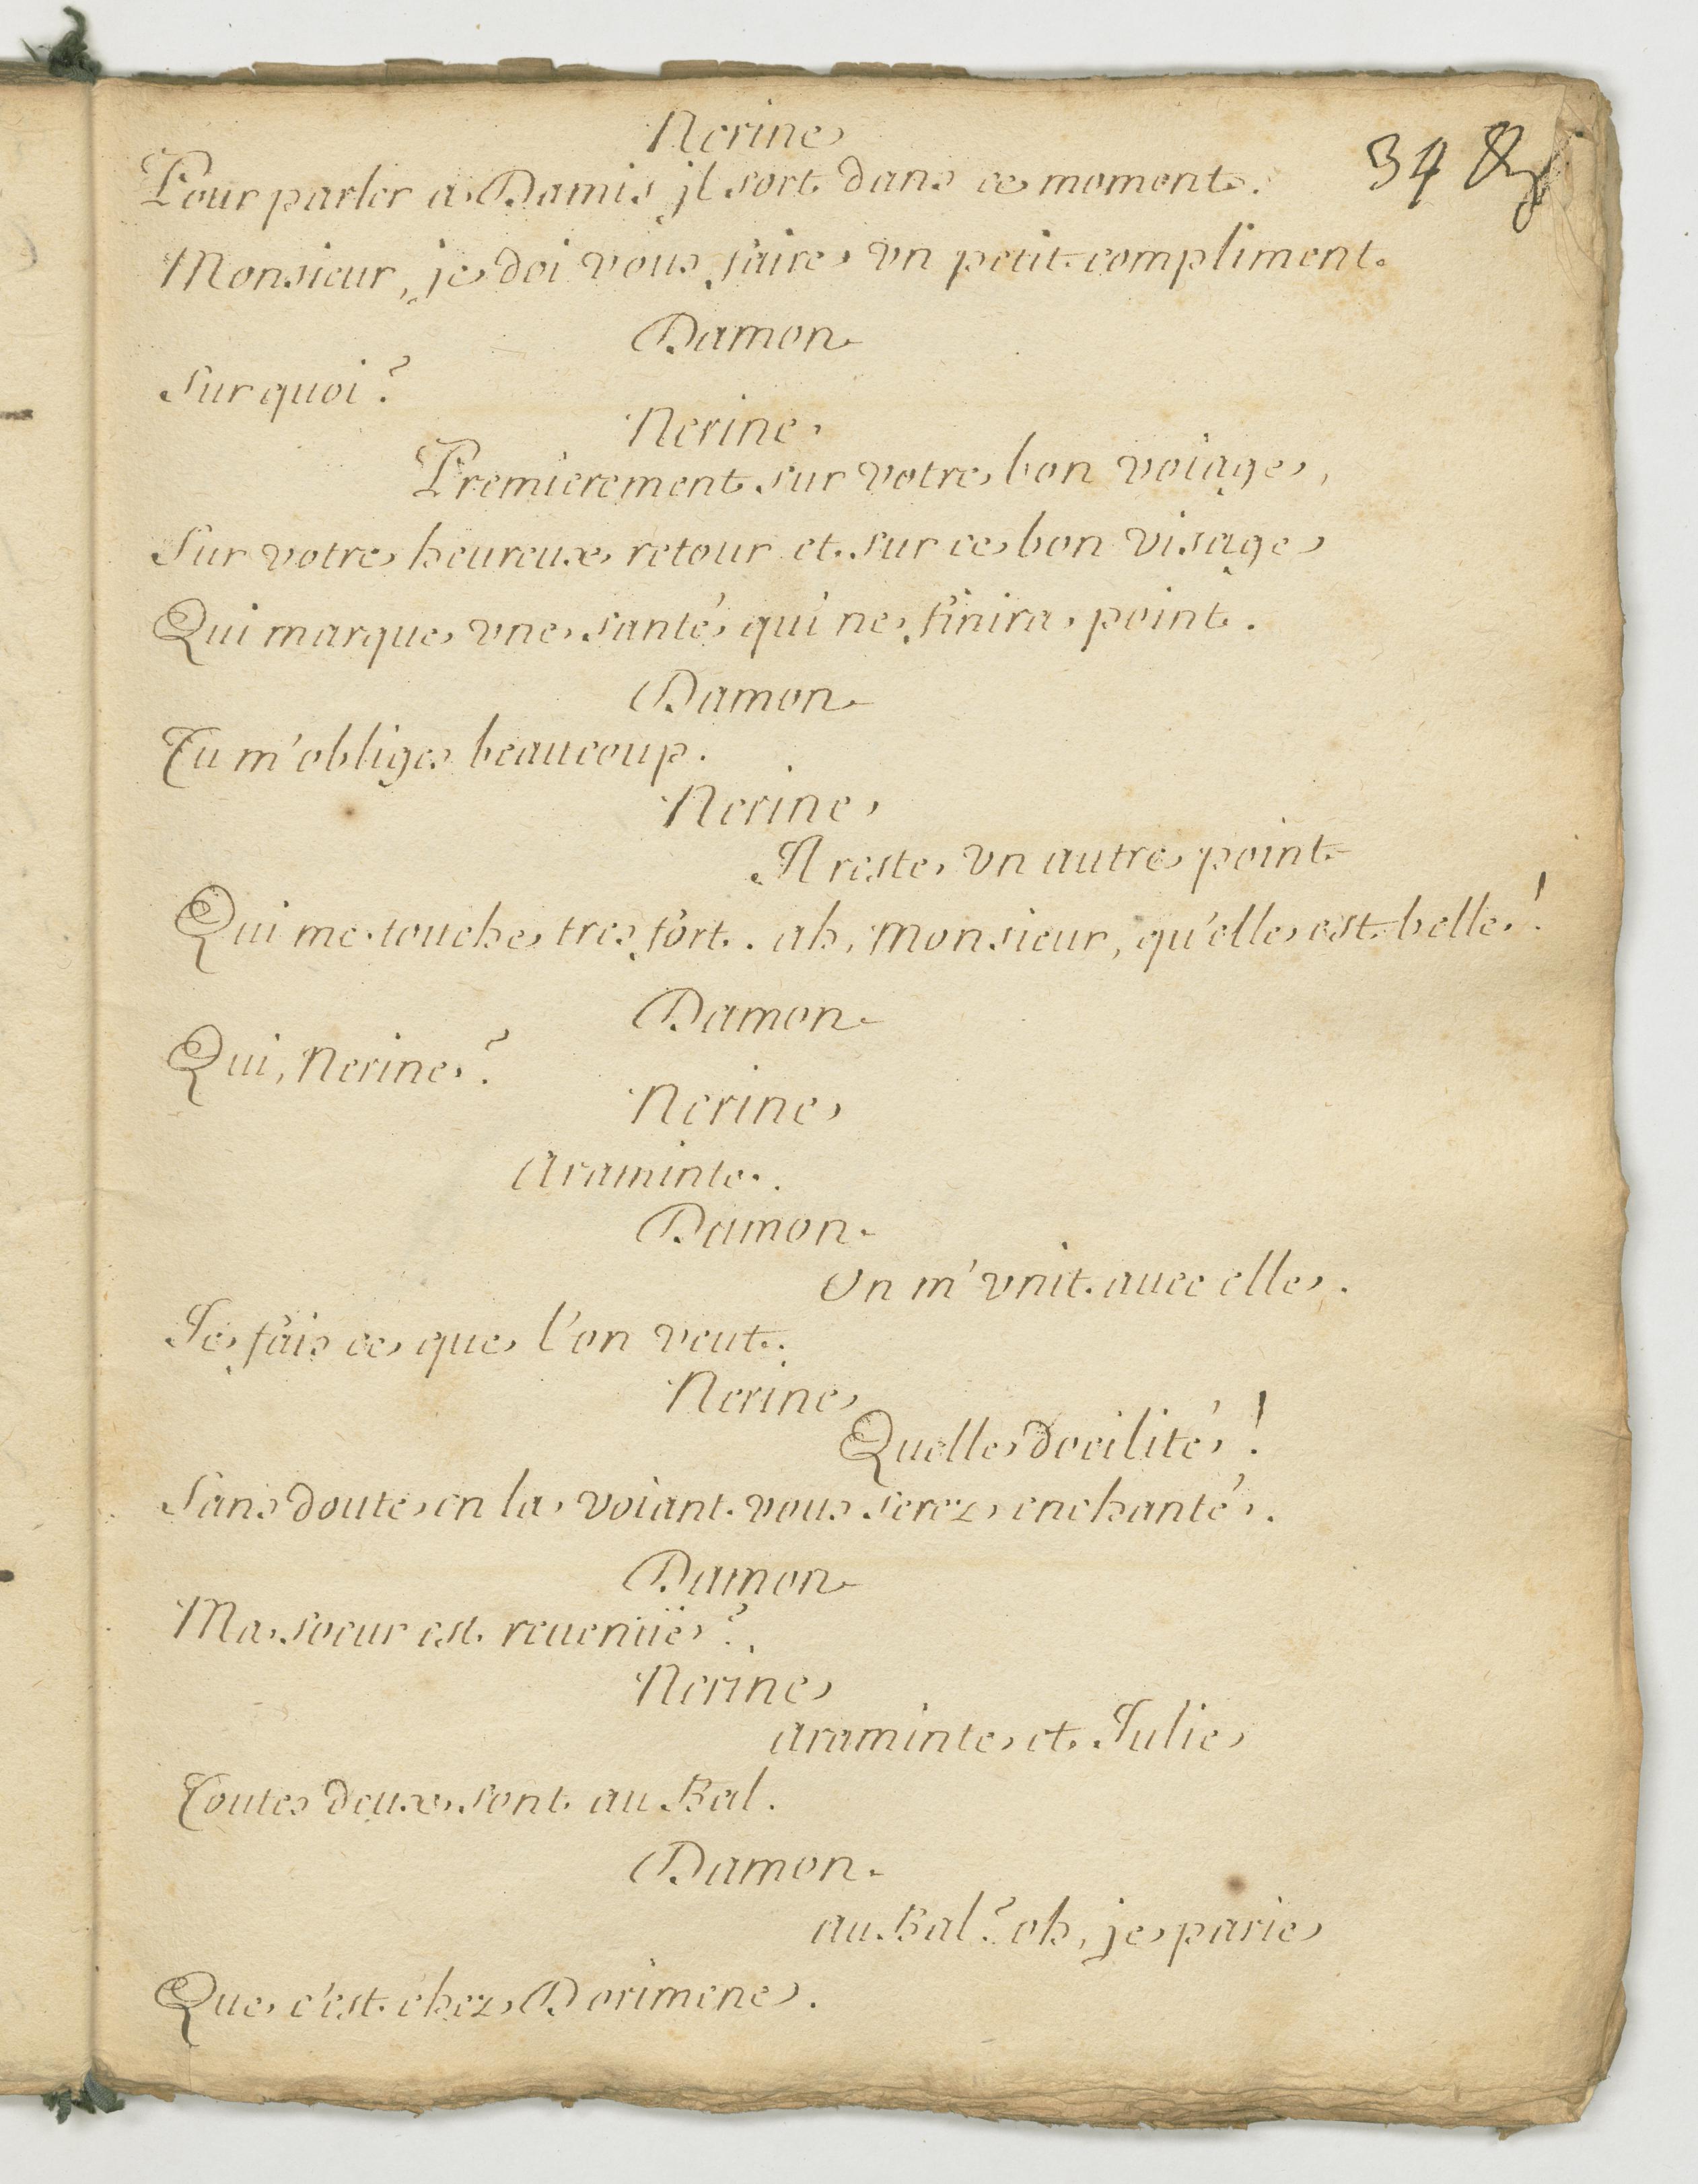 Nerine
34
Pour parler a Damis jl sort dans ce moment.
Monsieur, je doi vous faire vn petit compliment.
Damon
Sur quoi?
Nerine
Premierement sur votre bon voiage,
Sur votre heureux retour et sur ce bon visage
Qui marque vne santé qui ne finira point.
Damon
Tu m'obliges beaucoup.
Nerine
Il reste vn autre point
Qui me touche tres fort. ah, Monsieur, qu'elle est belle!
Damon
Qui, Nerine?
Nerine
Araminte.
Damon
On m'vnit auec elle.
Je fais ce que l'on veut.
Nerine
Quelle docilité!
Sans doute en la voiant vous serez enchanté.
Damon
Ma soeur est reuenüe?
Nerine
araminte et Julie
Toutes deux sont au Bal.
Damon
au Bal? oh, je parie
Que c'est chez Dorimene.